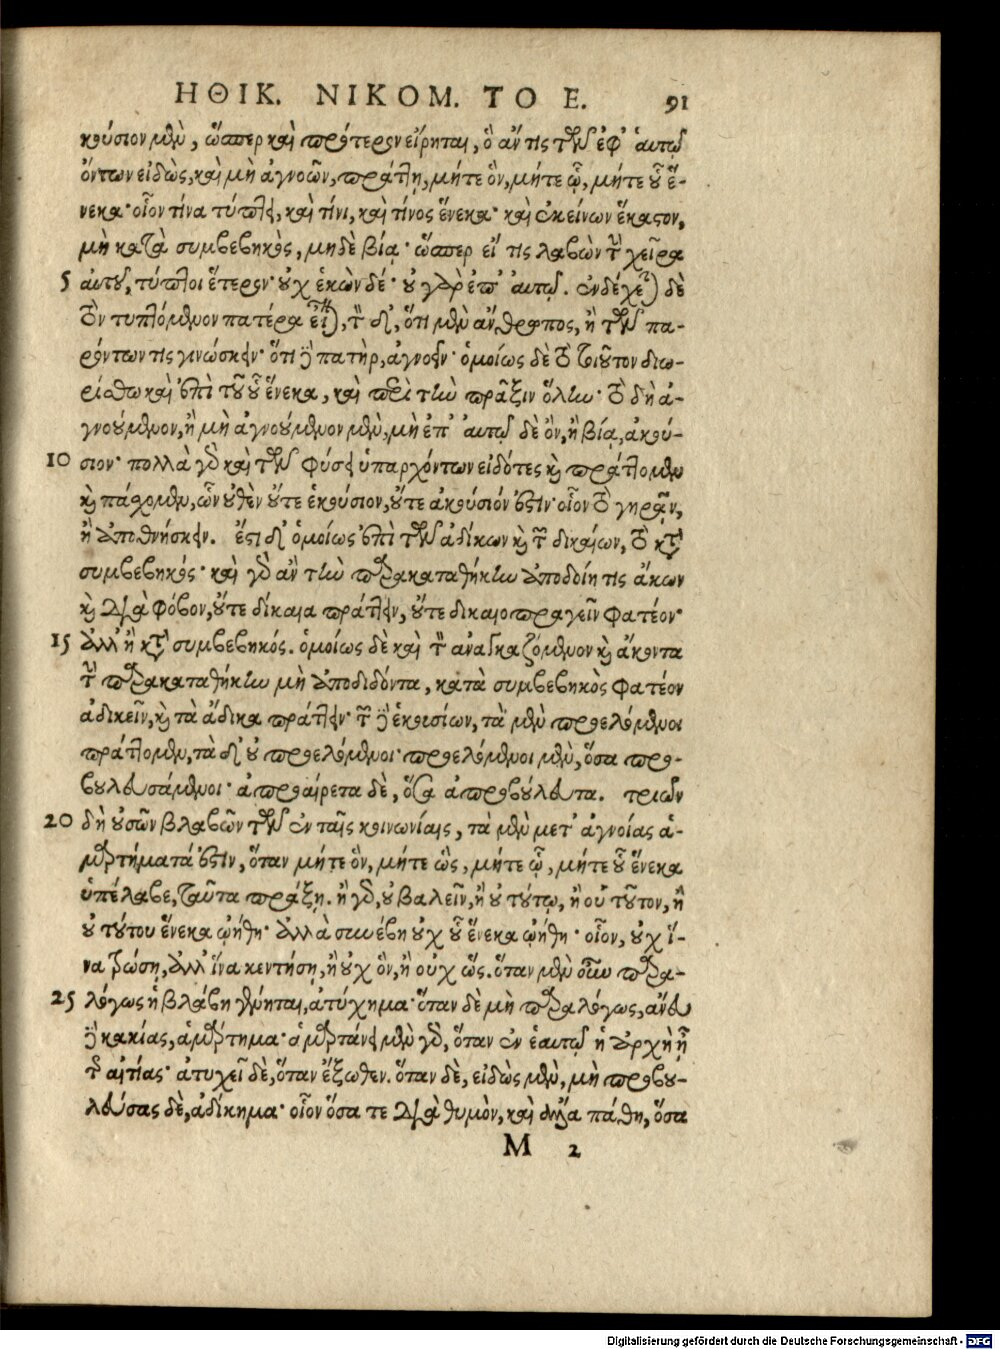 ΗΘΙΚ. ΝΙΚΟΜ. ΤΟ Ε. 91
κούσιον μὲν, ὥσπερ καὶ πρότερον εἴρηται, ὃ ἄν τις τῶν ἐφ' αὑτῷ
ὄντων εἰδὼς, καὶ μὴ ἀγνοῶν, πράττῃ, μήτε ὃν, μήτε ᾧ, μήτε οὗ ἕ-
νεκα· οἷον τίνα τύπτει, καὶ τίνι, καὶ τίνος ἕνεκα· καὶ ἐκείνων ἕκαστον,
μὴ κατὰ συμβεβηκὸς, μηδὲ βίᾳ· ὥσπερ εἴ τις λαβὼν τὴν χεῖρα
5 αὐτοῦ, τύπτοι ἕτερον· οὐχ ἑκὼν δέ· οὐ γὰρ ἐπ' αὐτῷ. ἐνδέχεται δὲ
τὸν τυπτόμενον πατέρα εἶναι, τὸν δ', ὅτι μὲν ἄνθρωπος, ἢ τῶν πα-
ρόντων τις γινώσκειν· ὅτι δὲ πατὴρ, ἀγνοεῖν· ὁμοίως δὲ τὸ τοιοῦτον διω-
ρίσθω καὶ ἐπὶ τοῦ οὗ ἕνεκα, καὶ περὶ τὴν πρᾶξιν ὅλην· τὸ δὴ ἀ-
γνοούμενον, ἢ μὴ ἀγνοούμενον μὲν, μὴ ἐπ' αὐτῷ δὲ ὂν, ἢ βίᾳ, ἀκού-
10 σιον· πολλὰ γὰρ καὶ τῶν φύσει ὑπαρχόντων εἰδότες καὶ πράττομεν
καὶ πάσχομεν, ὧν οὐθὲν οὔτε ἑκούσιον, οὔτε ἀκούσιόν ἐστιν· οἷον τὸ γηρᾷν,
ἢ ἀποθνήσκειν. ἔστι δ' ὁμοίως ἐπὶ τῶν ἀδίκων καὶ τῶν δικαίων, τὸ κατὰ
συμβεβηκός· καὶ γὰρ ἂν τὴν παρακαταθήκην ἀποδοίη τις ἄκων
καὶ διὰ φόβον, οὔτε δίκαια πράττειν, οὔτε δικαιοπραγεῖν φατέον·
15 ἀλλ' ἢ κατὰ συμβεβηκός. ὁμοίως δὲ καὶ τὸν ἀναγκαζόμενον καὶ ἄκοντα
τὴν παρακαταθήκην μὴ ἀποδιδόντα, κατὰ συμβεβηκὸς φατέον
ἀδικεῖν, καὶ τὰ ἄδικα πράττειν· τῶν δὲ ἑκουσίων, τὰ μὲν προελόμενοι
πράττομεν, τὰ δ' οὐ προελόμενοι· προελόμενοι μὲν, ὅσα προ-
βουλευσάμενοι· ἀπροαίρετα δὲ, ὅσα ἀπροβούλευτα. τριῶν
20 δὴ οὐσῶν βλαβῶν τῶν ἐν ταῖς κοινωνίαις, τὰ μὲν μετ' ἀγνοίας ἁ-
μαρτήματά ἐστιν, ὅταν μήτε ὃν, μήτε ὣς, μήτε ᾧ, μήτε οὗ ἕνεκα
ὑπέλαβε, ταῦτα πράξῃ. ἢ γὰρ, οὐ βαλεῖν, ἢ οὐ τούτῳ, ἢ οὐ τοῦτον, ἢ
οὐ τούτου ἕνεκα ᾠήθη· ἀλλὰ συνέβη οὐχ οὗ ἕνεκα ᾠήθη· οἷον, οὐχ ἵ-
να τρώσῃ, ἀλλ' ἵνα κεντήσῃ, ἢ οὐχ ὃν, ἢ οὐχ ὥς. ὅταν μὲν οὖν παρα-
25 λόγως ἡ βλάβη γένηται, ἀτύχημα· ὅταν δὲ μὴ παραλόγως, ἄνευ
δὲ κακίας, ἁμάρτημα· ἁμαρτάνει μὲν γὰρ, ὅταν ἐν ἑαυτῷ ἡ ἀρχὴ ᾖ
τῆς αἰτίας· ἀτυχεῖ δὲ, ὅταν ἔξωθεν. ὅταν δὲ, εἰδὼς μὲν, μὴ προβου-
λεύσας δὲ, ἀδίκημα· οἷον ὅσα τε διὰ θυμὸν, καὶ ἄλλα πάθη, ὅσα
M 2
Digitalisierung gefördert durch die Deutsche Forschungsgemeinschaft - DFG